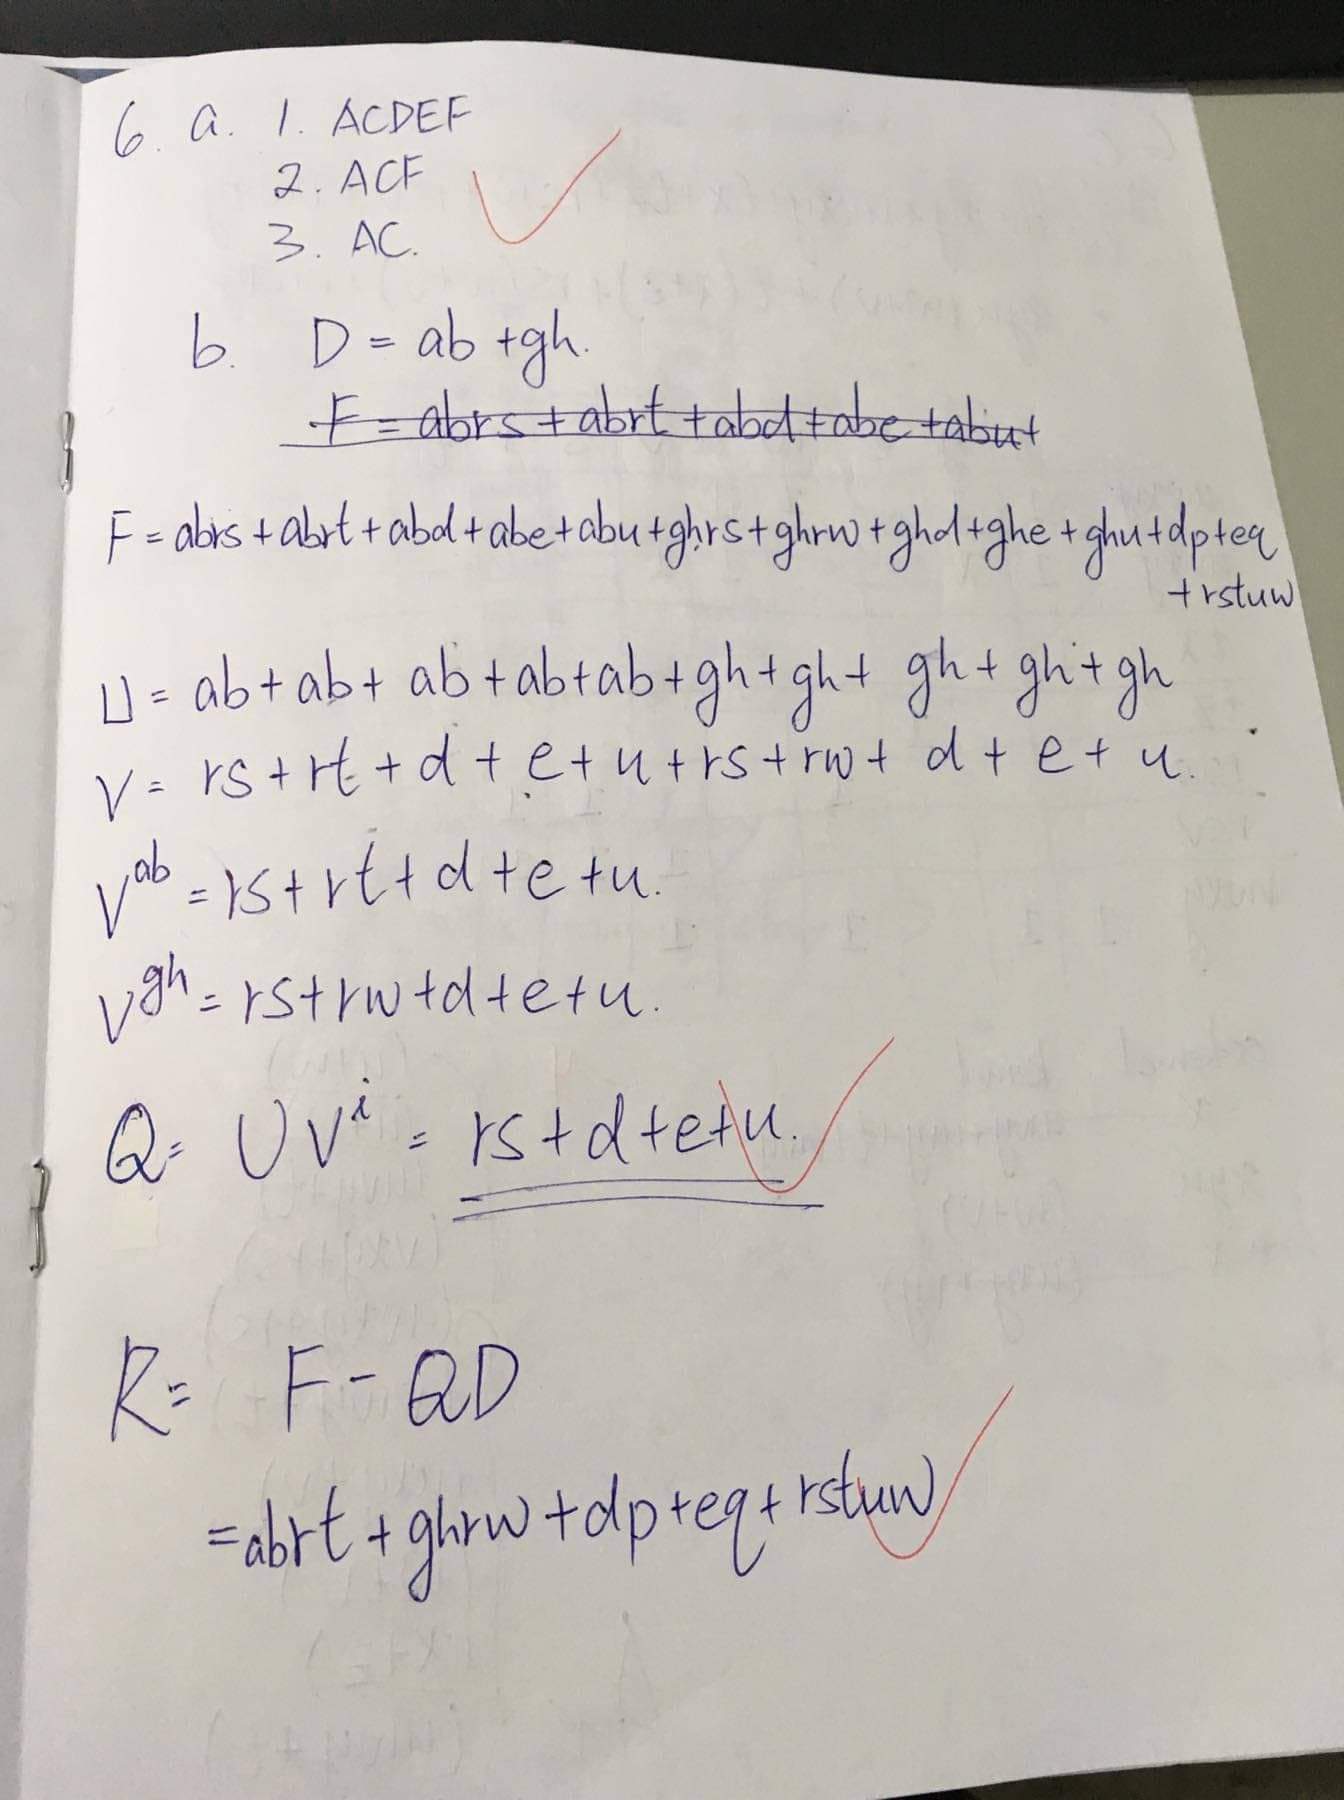 6. a. 1. ACDEF
2. ACF
3. AC.
b. D = ab + gh.
F = abrs + abrt + abd + abe + abu +
F = abrs + abrt + abd + abe + abu + ghrs + ghrw + ghd + ghe + ghu + dp + eq
+ rstuw
U = ab + ab + ab + ab + ab + gh + gh + gh + gh + gh
V = rs + rt + d + e + u + rs + rw + d + e + u.
V^ab = rs + rt + d + e + u.
V^gh = rs + rw + d + e + u.
Q = UV^i = rs + d + e + u.
R = F - QD
= abrt + ghrw + dp + eq + rstuw